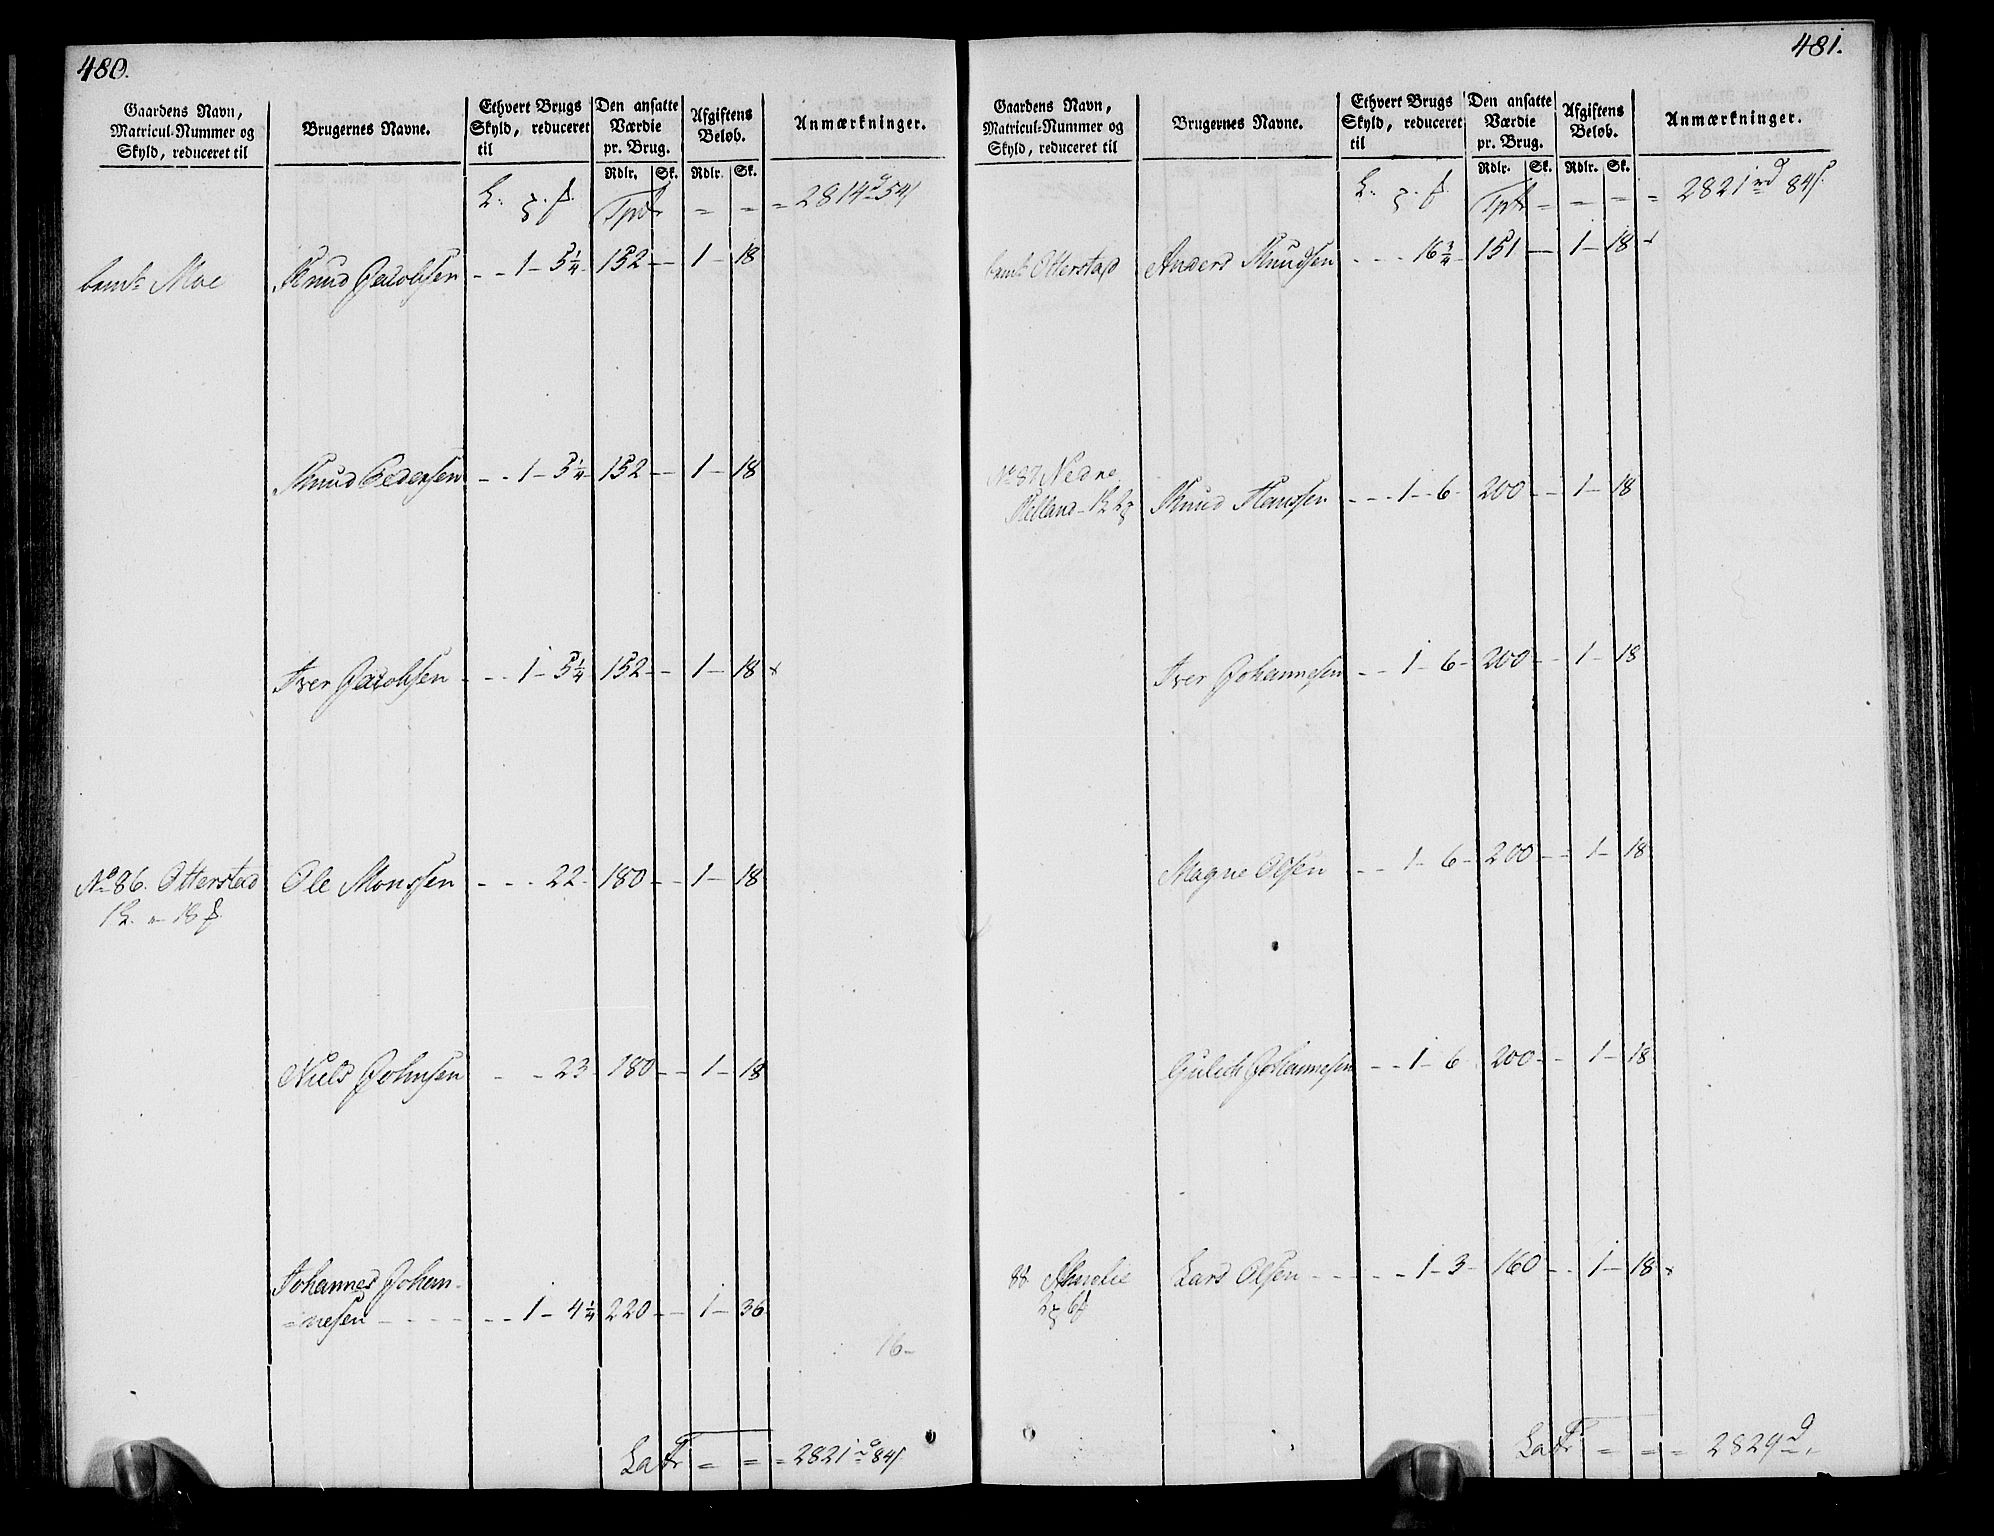 480.
Gaardens Navn,
Matricul-Nummer og
Skyld, reduceret til
Brugernes Navne.
Ethvert Brugs
Skyld, reduceret
til
Den ansatte
Værdie
pr. Brug.
Afgiftens
Beløb.
Anmærkninger.
Rdlr. Sk. Rdlr. Sk.
Tpt = = = 2814 d 54 s
Moe Knud Jacobsen - - 1 - 5 1/4 152 - - 1 - 18
Knud Pedersen - - 1 - 5 1/4 152 - - 1 - 18
Iver Jacobsen - - 1 - 5 1/4 152 - - 1 - 18 x
No 86. Otterstad Ole Monssen - - - 22 - 180 - - 1 - 18
1 L. " 18
Niels Johnsen - - 23 180 - - 1 - 18
Johannes Johan-
=nesen - - - - - - 1 - 4 1/4 220 - - 1 - 36
16-
Latr = = = 2821 d 84 s
481.
Gaardens Navn,
Matricul-Nummer og
Skyld, reduceret til
Brugernes Navne.
Ethvert Brugs
Skyld, reduceret
til
Den ansatte
Værdie
pr. Brug.
Afgiftens
Beløb.
Anmærkninger.
Rdlr. Sk. Rdlr. Sk.
Tpt = = = = 2821 rd 84 s.
Otterstad Anders Knudsen - - - 16 3/4 - 151 - - 1 - 18 x
No 87 Nedre
Helland - Knud Hanssen - - - 1 - 6 - 200 - - 1 - 18
Iver Johannesen - - 1 - 6 - 200 - - 1 - 18
Magne Olsen - - 1 - 6 - 200 - - 1 - 18
Gulich Johannesen - - 1 - 6 200 - - 1 - 18
88 Lars Olsen - - - - - 1 - 3 - 160 - - 1 - 18 x
Latr = = = 2829 d.